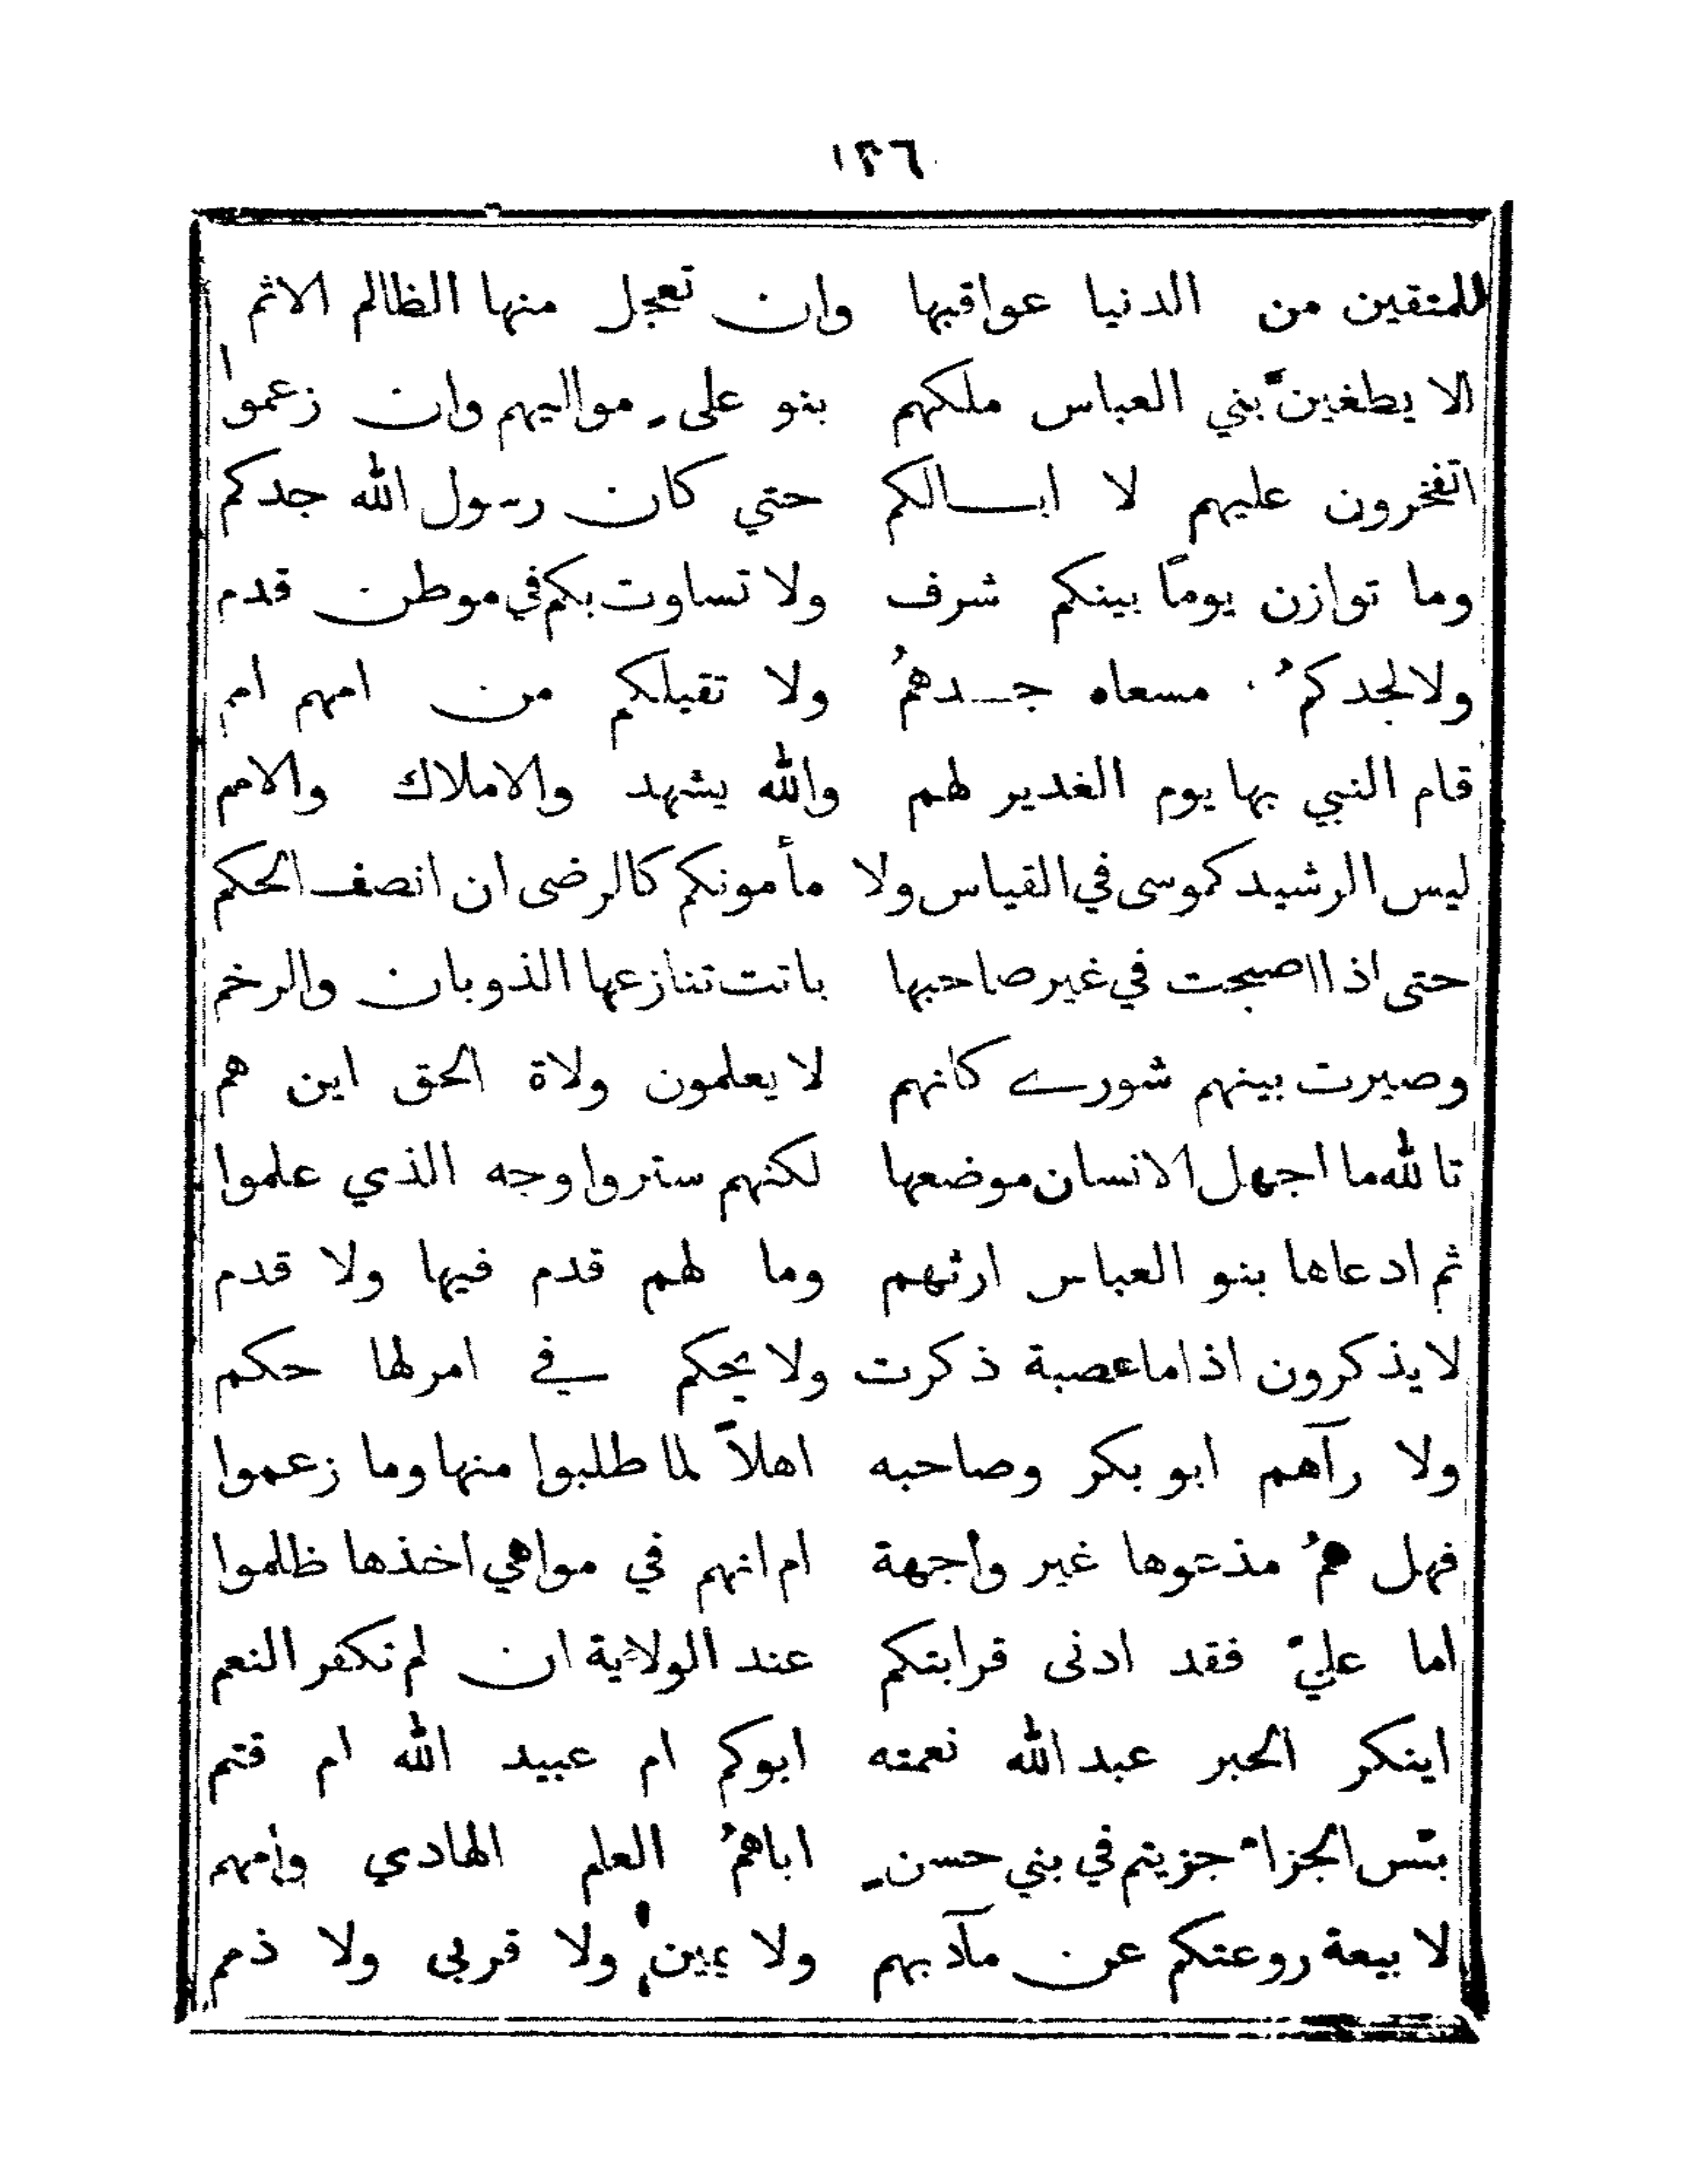 ١٢٦
للمتقين من الدنيا عواقبها وان تعجل منها الظالم الاثم
الا يطغين بني العباس ملكهم بنو علي مواليهم وان زعموا
اتفخرون عليهم لا ابــالكم حتي كان رسول الله جدكم
وما توازن يوماً بينكم شرف ولا تساوت بكم في موطن قدم
ولا لجدكمُ مسعاه جــدهمُ ولا تقيلكم من امهم ام
قام النبي بها يوم الغدير لهم والله يشهد والاملاك والامم
ليس الرشيد كموسى في القياس ولا مأمونكم كالرضى ان انصف الحكم
حتى اذا اصبحت في غير صاحبها باتت تنازعها الذوبان والرخم
وصيرت بينهم شورے كانهم لا يعلمون ولاة الحق اين هم
تالله ما اجهل الانسان موضعها لكنهم ستروا وجه الذي علموا
ثم ادعاها بنو العباس ارثهم وما لهم قدم فيها ولا قدم
لا يذكرون اذا ما عصبة ذكرت ولا يحكم في امر لها حكم
ولا رآهم ابو بكر وصاحبه اهلاً لما طلبوا منها وما زعموا
فهل همُ مذعوها غير واجهة ام انهم في مواهي اخذها ظلموا
اما عليّ فقد ادنى قرابتكم عند الولاية ان لم تكفر النعم
اينكر الحبر عبد الله نعمته ابوكم ام عبيد الله ام قتم
بئس الجزاء جزيتم في بني حسن اباهمُ العلم الهادي وامهم
لا بيعة روعتكم عن مآدبهم ولا يمين ولا قربى ولا ذمم